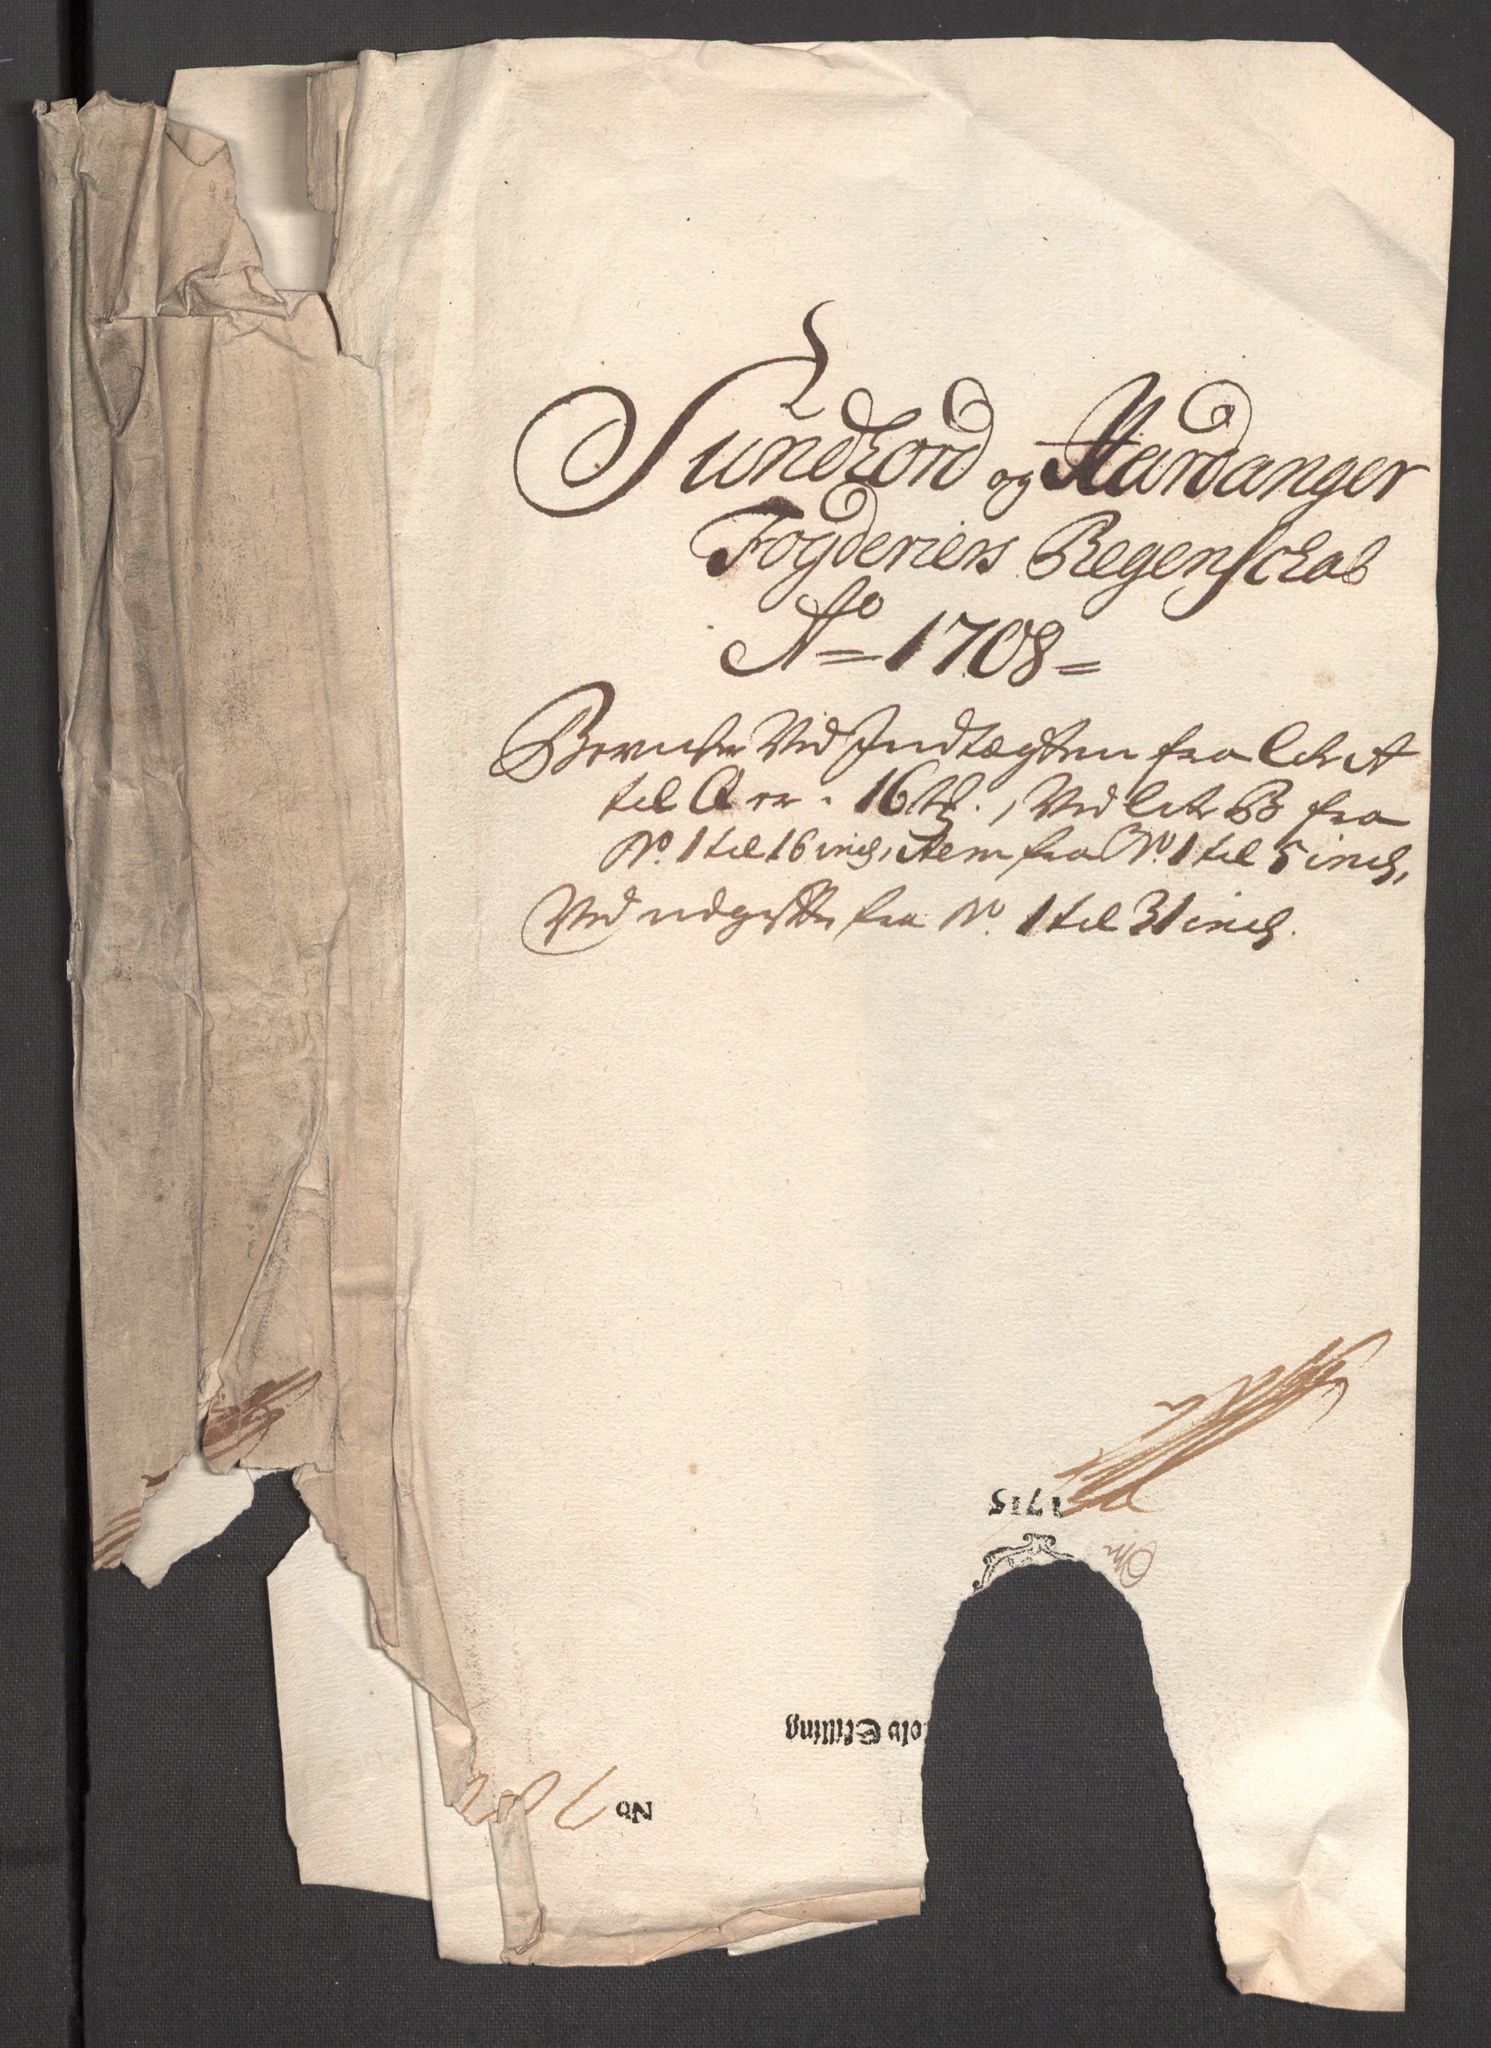 Sundhord og Hardanger
Fogderiers Regenschab
Ao 1708
Beviiser Ved Indtægten fra Litr A
til Q er 16 st, Ved Litr B fra
No. 1 til 16 incl, Item fra No. 1 til 5 incl,
Ved udgifften fra No. 1 til 31 incl.
1715
olv Skilling
No